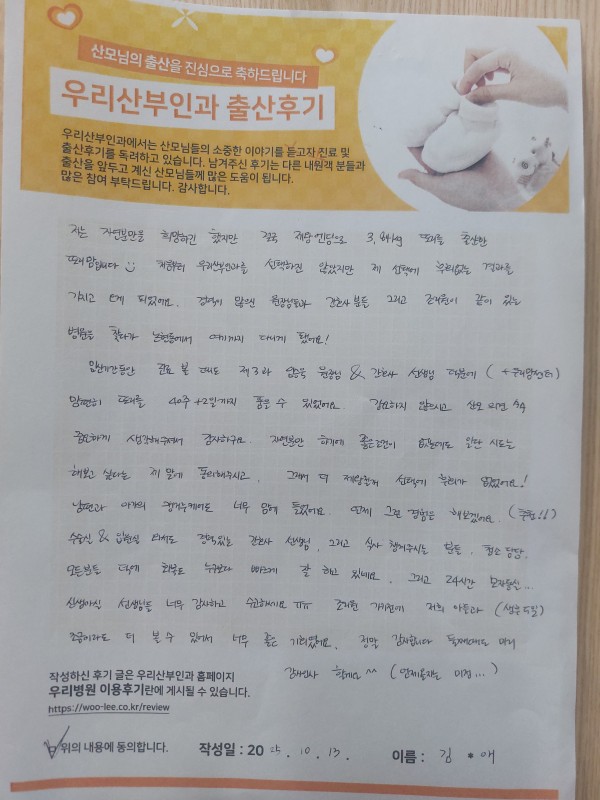 산모님의 출산을 진심으로 축하드립니다
우리산부인과 출산후기
우리산부인과에서는 산모님들의 소중한 이야기를 듣고자 진료 및
출산후기를 독려하고 있습니다. 남겨주신 후기는 다른 내원객 분들과
출산을 앞두고 계신 산모님들께 많은 도움이 됩니다.
많은 참여 부탁드립니다. 감사합니다.
저는 자연분만을 희망하긴 했지만 결국 제왕엔딩으로 3. kg 의 출산한
처음부터 우리산부인과를 선택하진 않았지만 제 선택에 후회없는 결과를
가지고 오게 되었어요. 경력이 많으신 원장님들과 간호사분들 그리고 조리원이 같이 있는
병원을 찾다가 논현동에서 여기까지 다니게 됐어요!
임신기간동안 진료 볼 때도 제3과 원장님 & 간호사 선생님 덕분에
맘편히 40주+2일까지 품을 수 있었어요. 강요하지 않으시고 산모 의견
중요하게 생각해주셔서 감사하구요. 자연분만 하기에 좋은조건이 없는데도 일단 시도는
해보고 싶다는 제 말에 동의해주시고, 그래서 더 제왕절개 선택에 후회가 없었어요!
남편과 아가의 너무 맘에 들었어요. 언제 그런 경험을 해보겠어요.
수술실 & 입원실 에서도 경력있는 간호사 선생님, 그리고 식사 챙겨주시는 분들, 청소 담당,
모든분들 덕에 회복도 누구보다 빠르게 잘 하고 있네요. 그리고 24시간 모자동실...
신생아실 선생님들 너무 감사하고 수고하세요 ㅠㅠ 조리원 가기전에 저희 아들과
조금이라도 더 볼 수 있어서 너무 좋은 기회였어요. 정말 감사합니다 둘째때도 미리
감사인사 할게요 ^^ (언제올지는 미정...)
작성하신 후기 글은 우리산부인과 홈페이지
우리병원 이용후기란에 게시될 수 있습니다.
https://woo-lee.co.kr/review
위의 내용에 동의합니다. 작성일 : 20 25. 10. 13. 이름 : 김 * 애